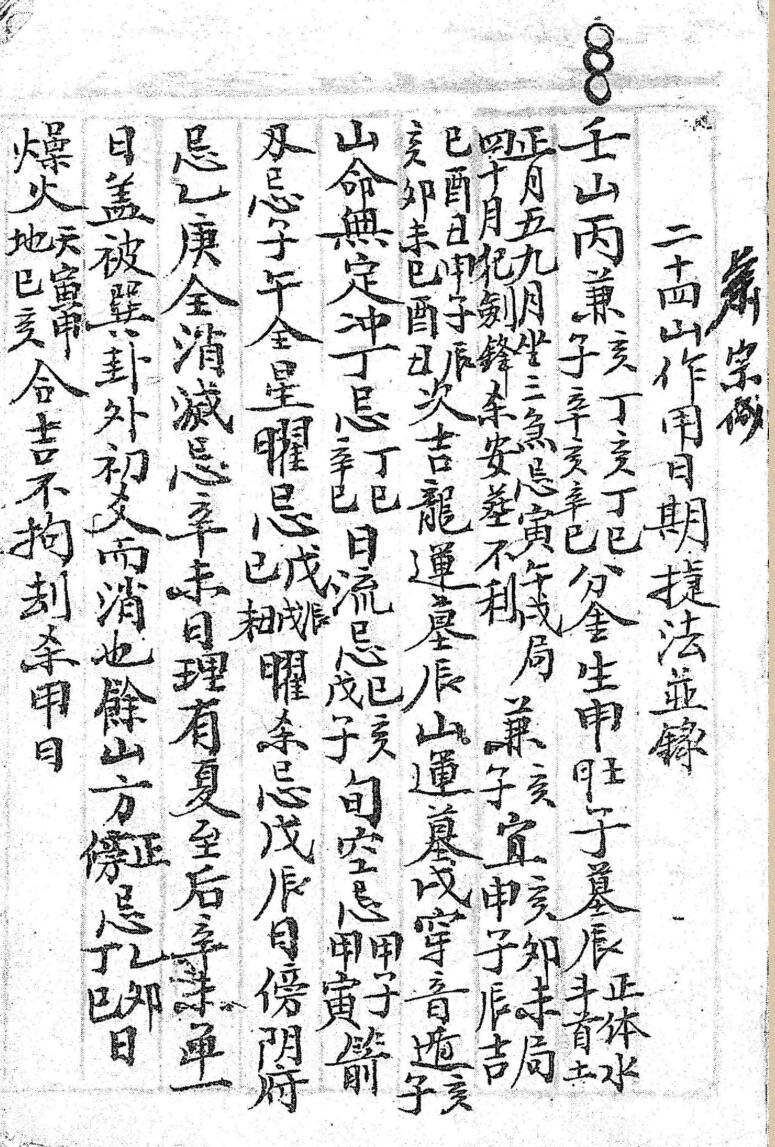 宗
二十四山作用日期捷法並錄
壬山丙兼亥子丁亥丁巳辛亥辛巳分金生申旺子墓辰正体水斗首土
正月五九月坐三煞忌寅午戌局兼亥宜亥卯未局
四十月犯劍鋒杀安葬不利子申子辰吉
巳酉丑申子辰亥卯未巳酉丑次吉龍運墓辰山運墓戌穿音遁亥子
山命無定冲丁忌丁巳辛巳日流忌巳亥戊子旬空忌甲子甲寅箭
刃忌子午全星曜忌戊戌戊辰巳日曜杀忌戊辰日傍阴府
忌乙庚全消滅忌辛未日理有夏至后辛未画一
日盖被巽卦外初爻而消也餘山方正傍忌乙卯丁巳日
燥火天寅申地巳亥合吉不拘刦杀甲日